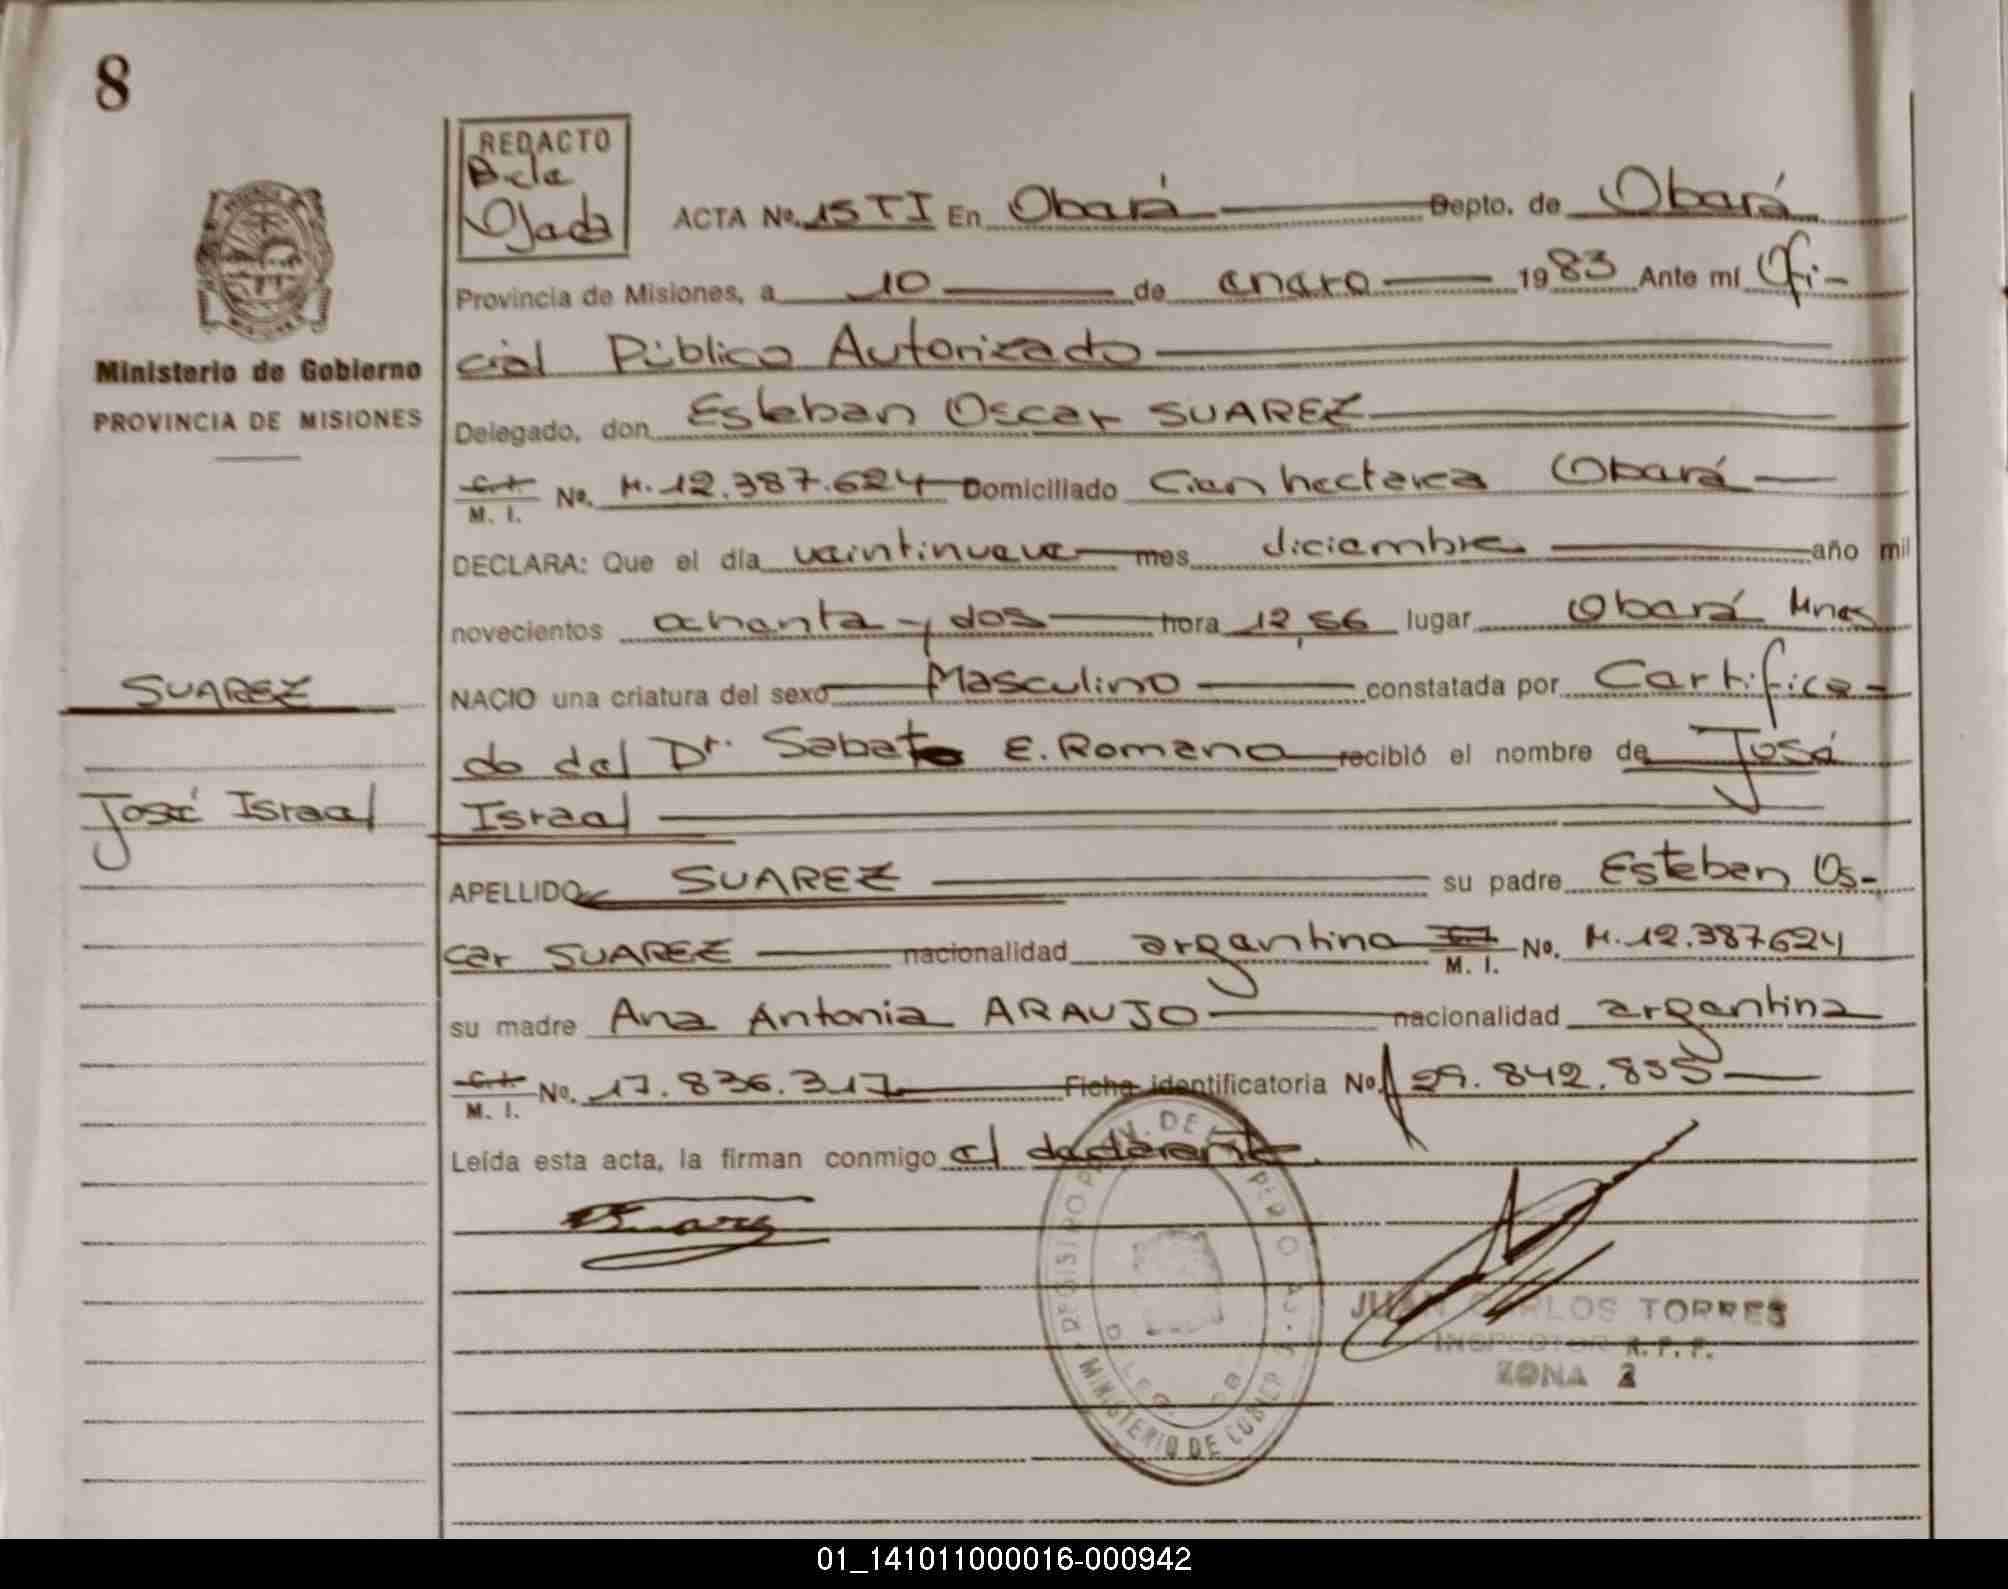 8
REDACTO
B. de
Ojeda
ACTA No. 15 TI En Oberá Depto. de Oberá
Provincia de Misiones, a 10 de enero 1983 Ante mí Ofi-
cial Público Autorizado
Ministerio de Gobierno
PROVINCIA DE MISIONES
Delegado, don Esteban Oscar SUAREZ
C. I.
M. I. No. M. 12.387.624 Domiciliado Cien hectarea Oberá
DECLARA: Que el día veintinueve mes diciembre año mil
novecientos ochenta y dos hora 12,56 lugar Oberá Mnes
SUAREZ
NACIO una criatura del sexo Masculino constatada por Certifica-
do del Dr. Sabato E. Romano recibió el nombre de José
José Israel
Israel
APELLIDO SUAREZ su padre Esteban Os-
car SUAREZ nacionalidad argentino M. I. No. M. 12.387624
su madre Ana Antonia ARAUJO nacionalidad argentina
C. I.
M. I. No. 17.836.317 Ficha identificatoria No. 29.842.835
Leída esta acta, la firman conmigo el declarante.
Suarez
JUAN CARLOS TORRES
INSPECTOR R. P. P.
ZONA 2
MINISTERIO DE GOBIER
01_141011000016-000942